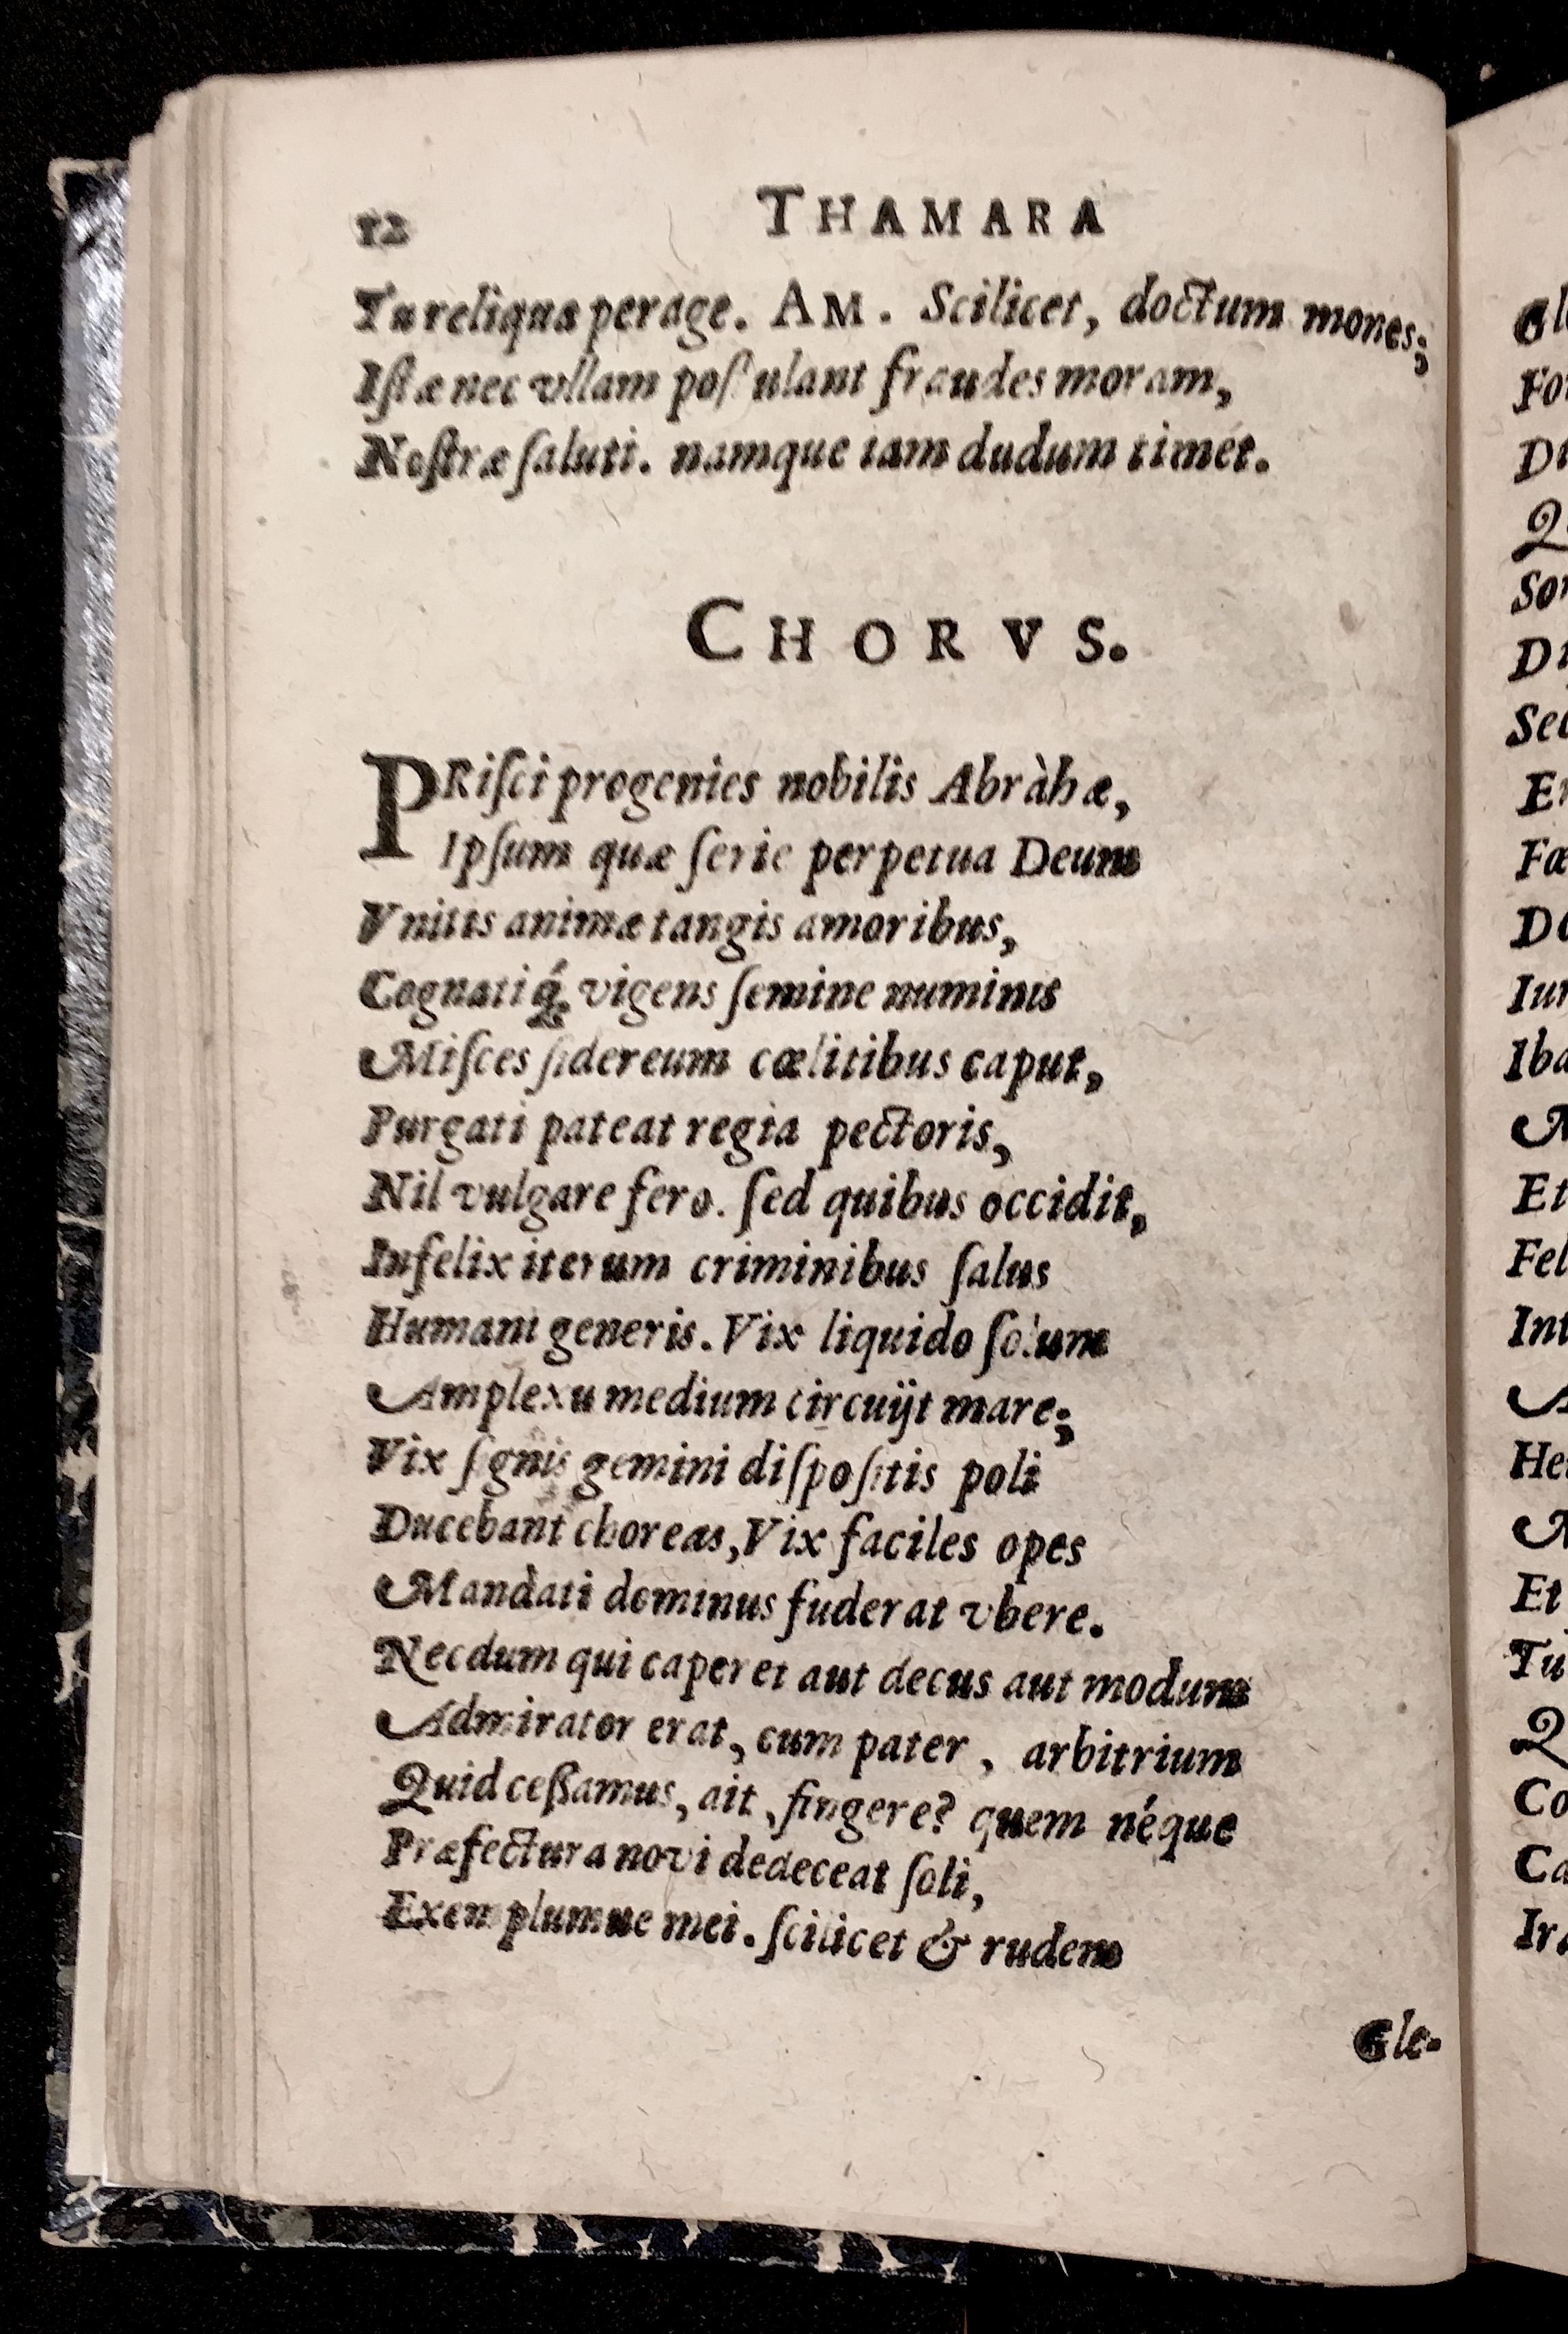 12 THAMARA
Tu reliqua perage. AM. Scilicet, doctum mones;
Iſtæ nec vllam poſtulant fraudes moram,
Noſtræ ſaluti. namque iam dudum timet.
CHORVS.
PRiſci progenies nobilis Abràhæ,
Ipſum quæ ſerie perpetua Deum
Vnitis animæ tangis amoribus,
Cognatiq́; vigens ſemine numinis
Miſces ſidereum cœlitibus caput,
Purgati pateat regia pectoris,
Nil vulgare fero. ſed quibus occidit,
Infelix iterum criminibus ſalus
Humani generis. Vix liquido ſolum
Amplexu medium circuijt mare;
Vix ſignis gemini diſpoſitis poli
Ducebant choreas, Vix faciles opes
Mandati dominus fuderat vbere.
Necdum qui caperet aut decus aut modum
Admirator erat, cum pater, arbitrium
Quid ceßamus, ait, fingere? quem néque
Præfectura novi dedeceat ſoli,
Exemplumue mei. ſcilicet & rudem
Gle-
Glo
Fo
Di
Q
So
Di
Sec
E
Fæ
D
Iu
Iba
M
Et
Fel
Int
A
He
M
Et
Tu
Q
Co
Ca
Ir